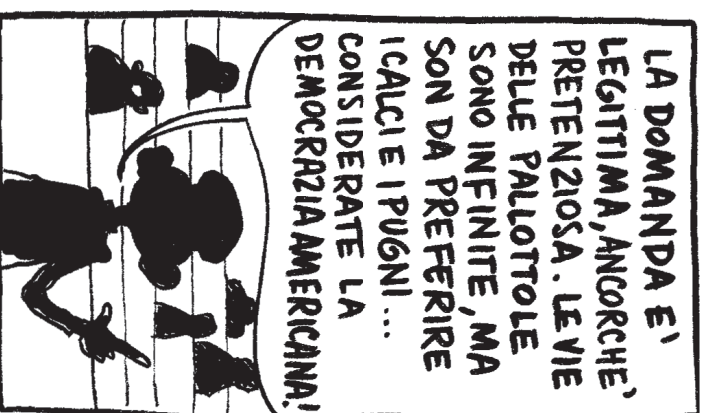 LA DOMANDA E'
LEGITTIMA, ANCORCHE'
PRETENZIOSA. LE VIE
DELLE PALLOTTOLE
SONO INFINITE, MA
SON DA PREFERIRE
I CALCI E I PUGNI...
CONSIDERATE LA
DEMOCRAZIA AMERICANA!